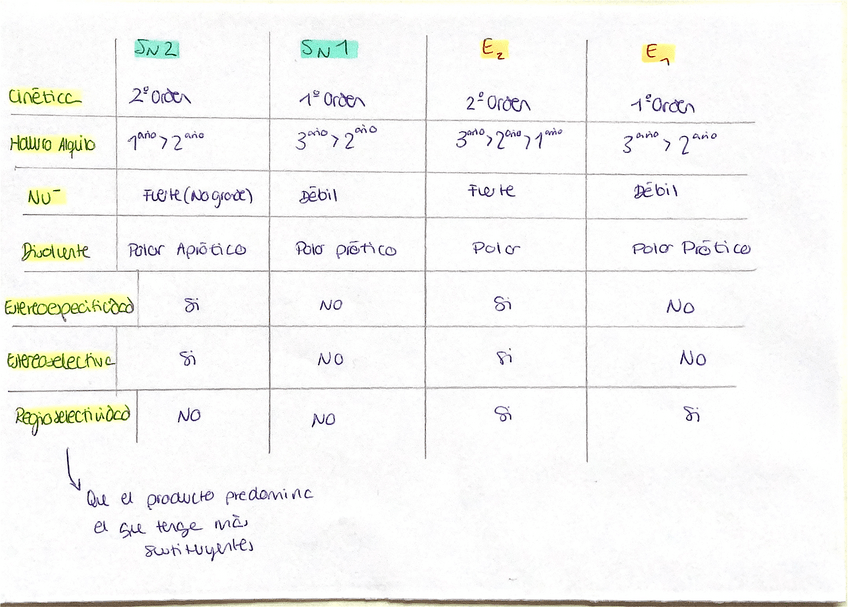 SN2 SN1 E2 E1
Cinética 2º Orden 1º Orden 2º Orden 1º Orden
Haluro Alquilo 1ario > 2ario 3ario > 2ario 3ario > 2ario > 1ario 3ario > 2ario
NU⁻ Fuerte (No grande) Débil Fuerte Débil
Disolvente Polar Aprótico Polar prótico Polar Polar Prótico
Estereoespecificidad Si NO Si NO
Estereoselectiva Si NO Si NO
Regioselectividad NO NO Si Si
Que el producto predomina
el que tenga más
sustituyentes